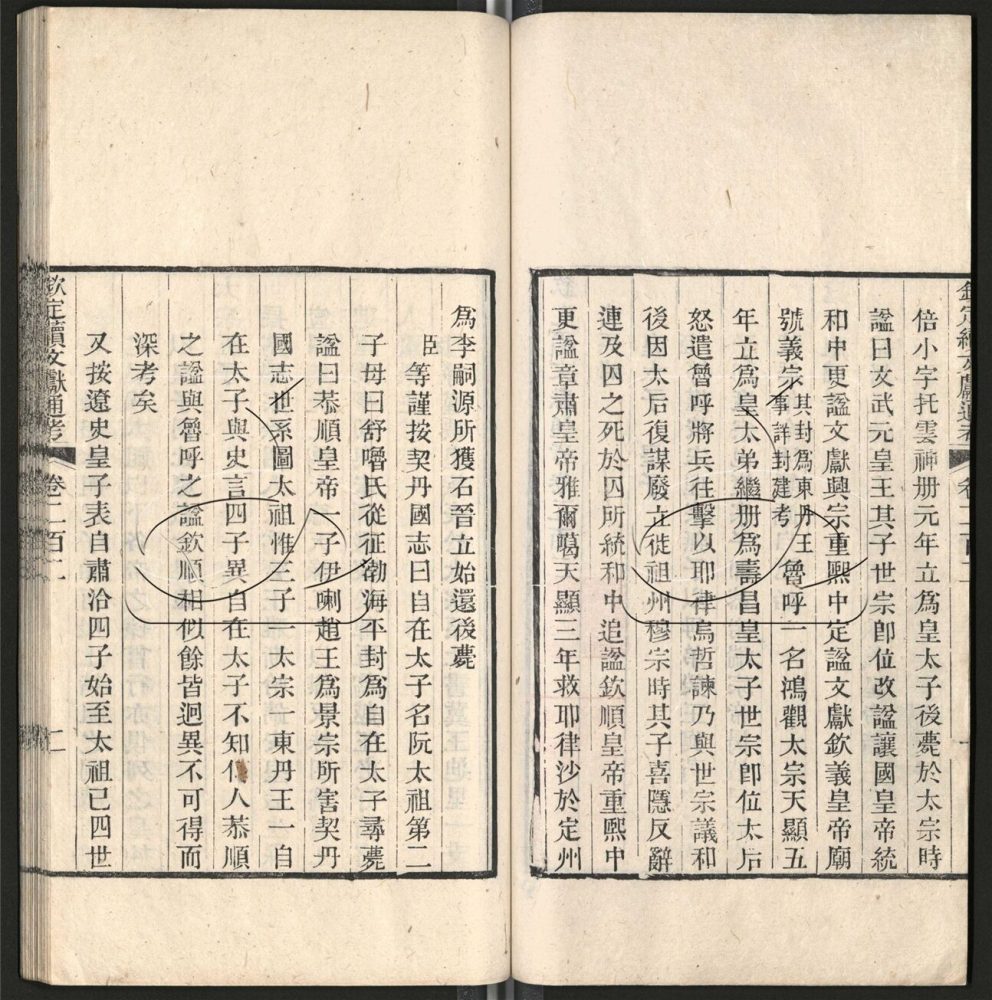 欽定續文獻通考 卷二百二 一
倍小字托雲神册元年立爲皇太子後薨於太宗時
謚曰文武元皇王其子世宗卽位改謚讓國皇帝統
和中更謚文獻興宗重熙中定謚文獻欽義皇帝廟
號義宗其封爲東丹王事詳封建考魯呼一名鴻觀太宗天顯五
年立爲皇太弟繼册爲壽昌皇太子世宗卽位太后
怒遣魯呼將兵往擊以耶律烏哲諫乃與世宗議和
後因太后復謀廢立徙祖州穆宗時其子喜隱反辭
連及囚之死於囚所統和中追謚欽順皇帝重熙中
更謚章肅皇帝雅爾噶天顯三年救耶律沙於定州
爲李嗣源所獲石晉立始還後薨
臣等謹按契丹國志曰自在太子名阮太祖第二
子母曰舒嚕氏從征渤海平封爲自在太子尋薨
謚曰恭順皇帝一子伊喇趙王爲景宗所害契丹
國志世系圖太祖惟三子一太宗一東丹王一自
在太子與史言四子異自在太子不知何人恭順
之謚與魯呼之謚欽順相似餘皆迥異不可得而
深考矣
又按遼史皇子表自肅洽四子始至太祖已四世
欽定續文獻通考 卷二百二 二